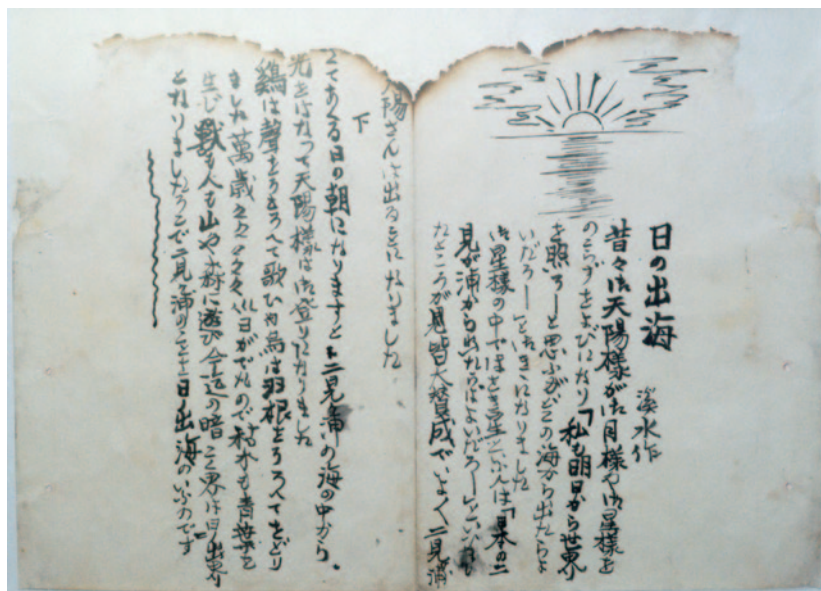 日の出海
淡水作
昔々御天陽様がお月様やお星様を
のこらずをよびになり「私も明日から世界
を照ろーと思ふがどこの海から出たらよ
いだろー」とおきゝになりました
お星様の中で
見が浦から出られたらばよいだろー」といふ
なところが見皆大賛成でいよ〱二見浦
太陽さんは出る事になりました
下
さてあくる日の朝になりますと二見浦の海の中から
光をはなって天陽様はお登りになりました
鷄は聲をそろへて歌ひ烏は羽根をそろへてをどり
ました萬歳々々々々日がでたので
生じ獣も人も山や森に遊び今迄の暗い世界は日ノ出界
となりましたそこで二見ヶ浦のことを日ノ出海のいふのです